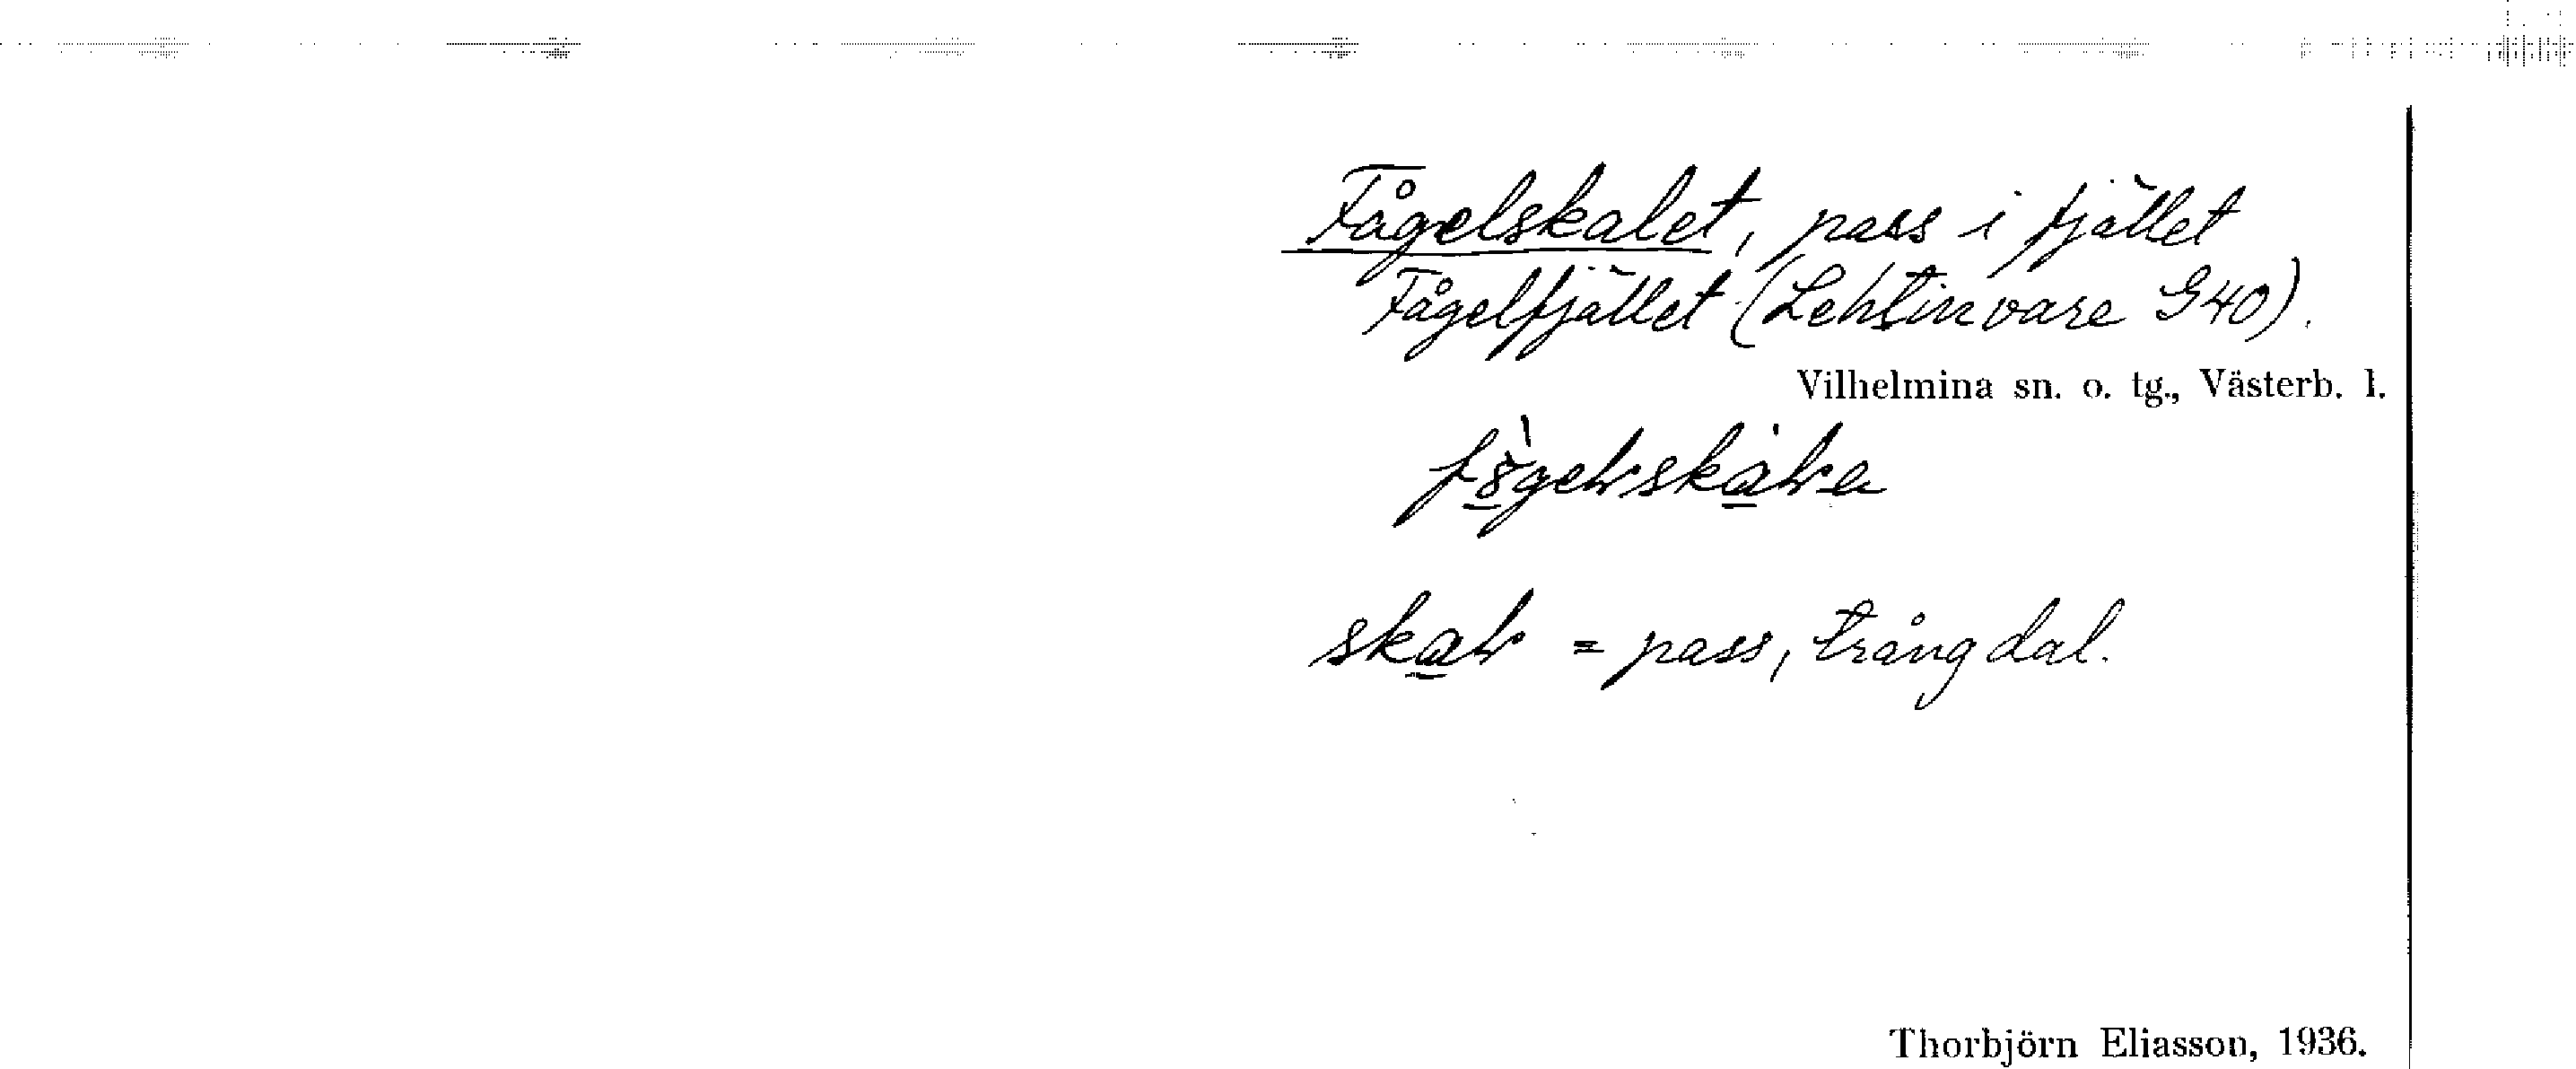 Fågelskalet, pass i fjället
Fågelfjället (Lehtinvare G40).
Vilhelmina sn. o. tg., Västerb. l.
skaɫ = pass, trång dal.
Thorbjörn Eliasson, 1936.